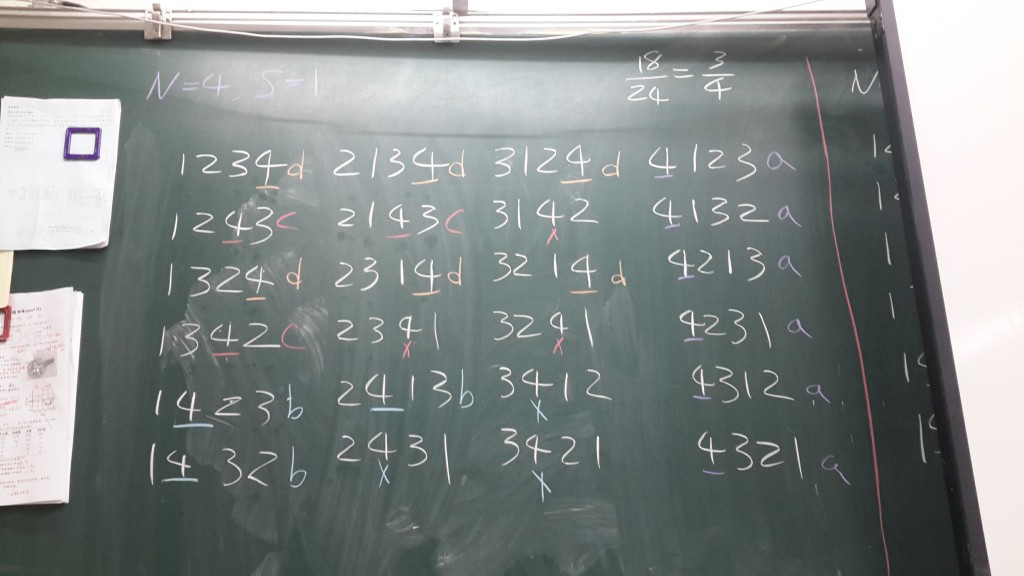 N=4, S=1
18/24 = 3/4
1234d 2134d 3124d 4123a
1243c 2143c 3142 4132a
x
1324d 2314d 3214d 4213a
1342c 2341 3241 4231a
x x
1423b 2413b 3412 4312a
x
1432b 2431 3421 4321a
x x
N